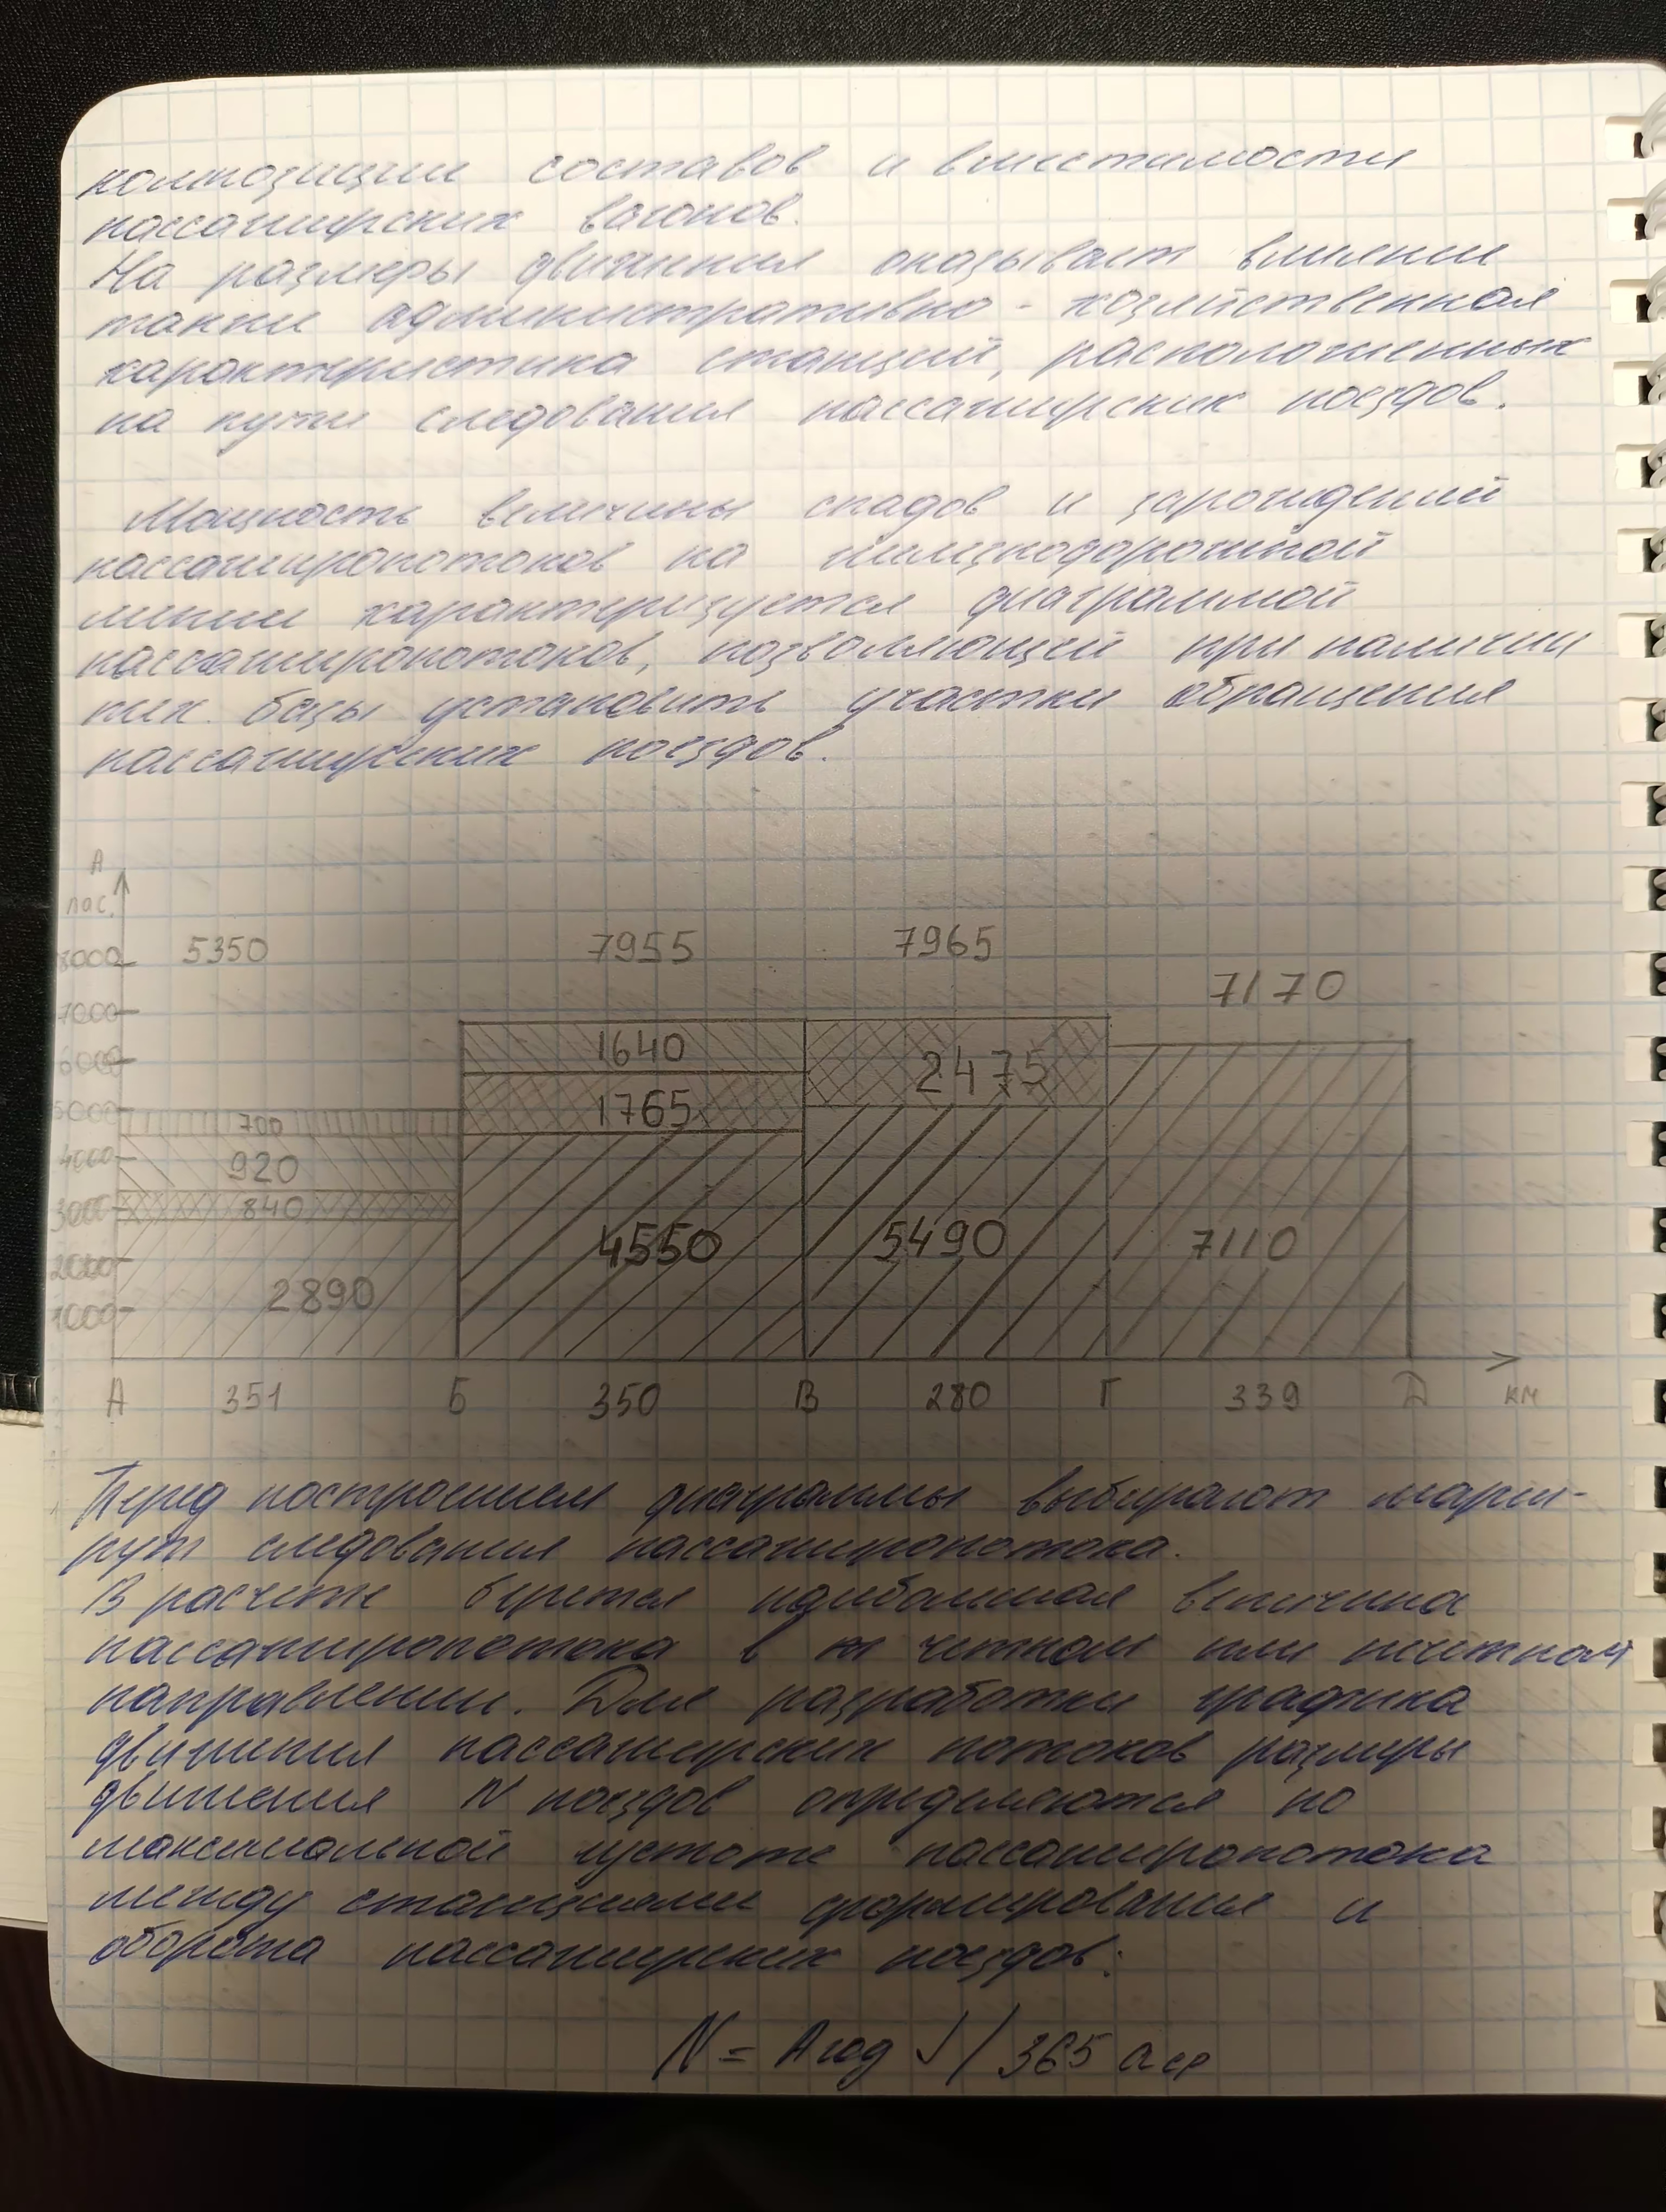 композиции составов и вместимости
пассажирских вагонов.
На размеры движения оказывает влияние
также административно - хозяйственная
характеристика станций, расположенных
на пути следования пассажирских поездов.
Мощность величины спадов и зарождений
пассажиропотоков на железнодорожной
линии характеризуется диаграммой
пассажиропотоков, позволяющей при наличии
тех. базы установить участки обращения
пассажирских поездов.
А
пас.
8000 5350 7955 7965
7170
7000
6000 1640 2475
5000 700 1765
4000 920
3000 840
2000 4550 5490 7110
1000 2890
А 351 Б 350 В 280 Г 339 Д км
Перед построением диаграммы выбирают марш-
рут следования пассажиропотока.
В расчете берется наибольшая величина
пассажиропотока в четном или нечетном
направлении. Для разработки графика
движения пассажирских потоков размеры
движения N поездов определяются по
максимальной густоте пассажиропотока
между станциями формирования и
оборота пассажирских поездов:
N = Aгод / 365 aср